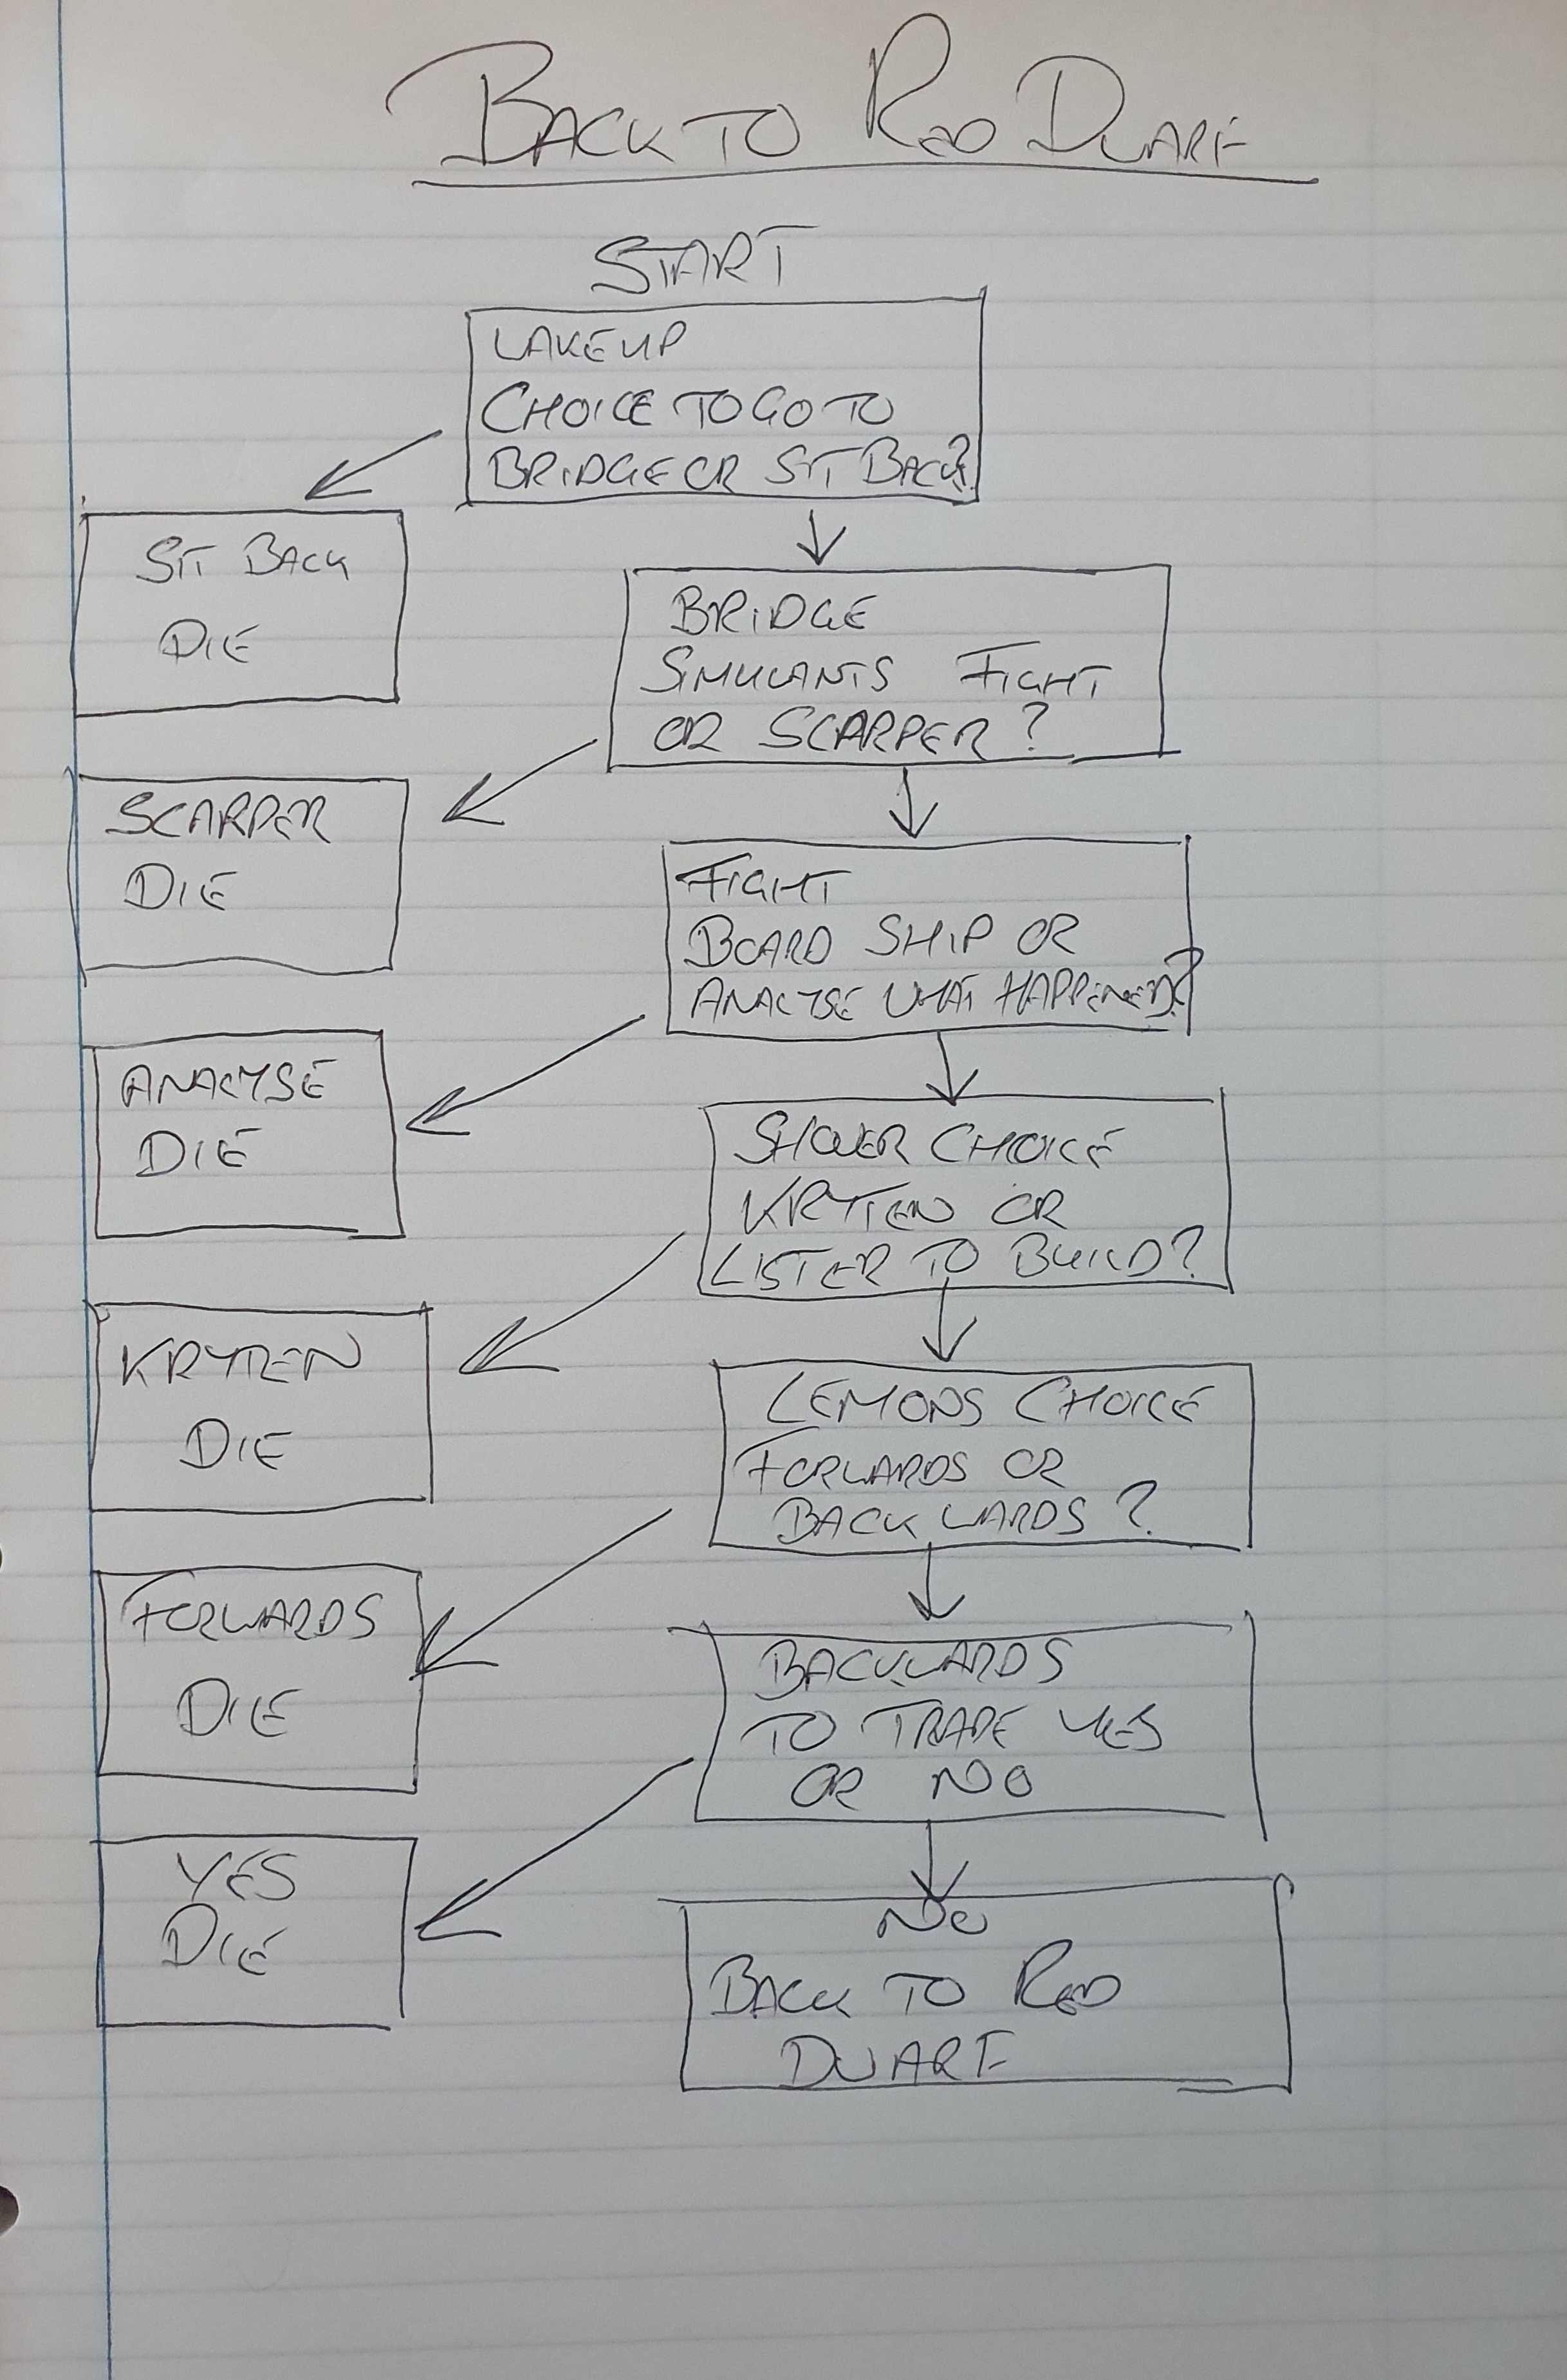 BACK TO RED DWARF
START
WAKE UP
CHOICE TO GO TO
BRIDGE OR SIT BACK?
SIT BACK
DIE
BRIDGE
SIMULANTS FIGHT
OR SCARPER?
SCARPER
DIE
FIGHT
BOARD SHIP OR
ANALYSE WHAT HAPPENED?
ANALYSE
DIE
SHOWER CHOICE
KRYTEN OR
LISTER TO BUILD?
KRYTEN
DIE
LEMONS CHOICE
FORWARDS OR
BACKWARDS?
FORWARDS
DIE
BACKWARDS
TO TRADE YES
OR NO
YES
DIE
NO
BACK TO RED
DWARF